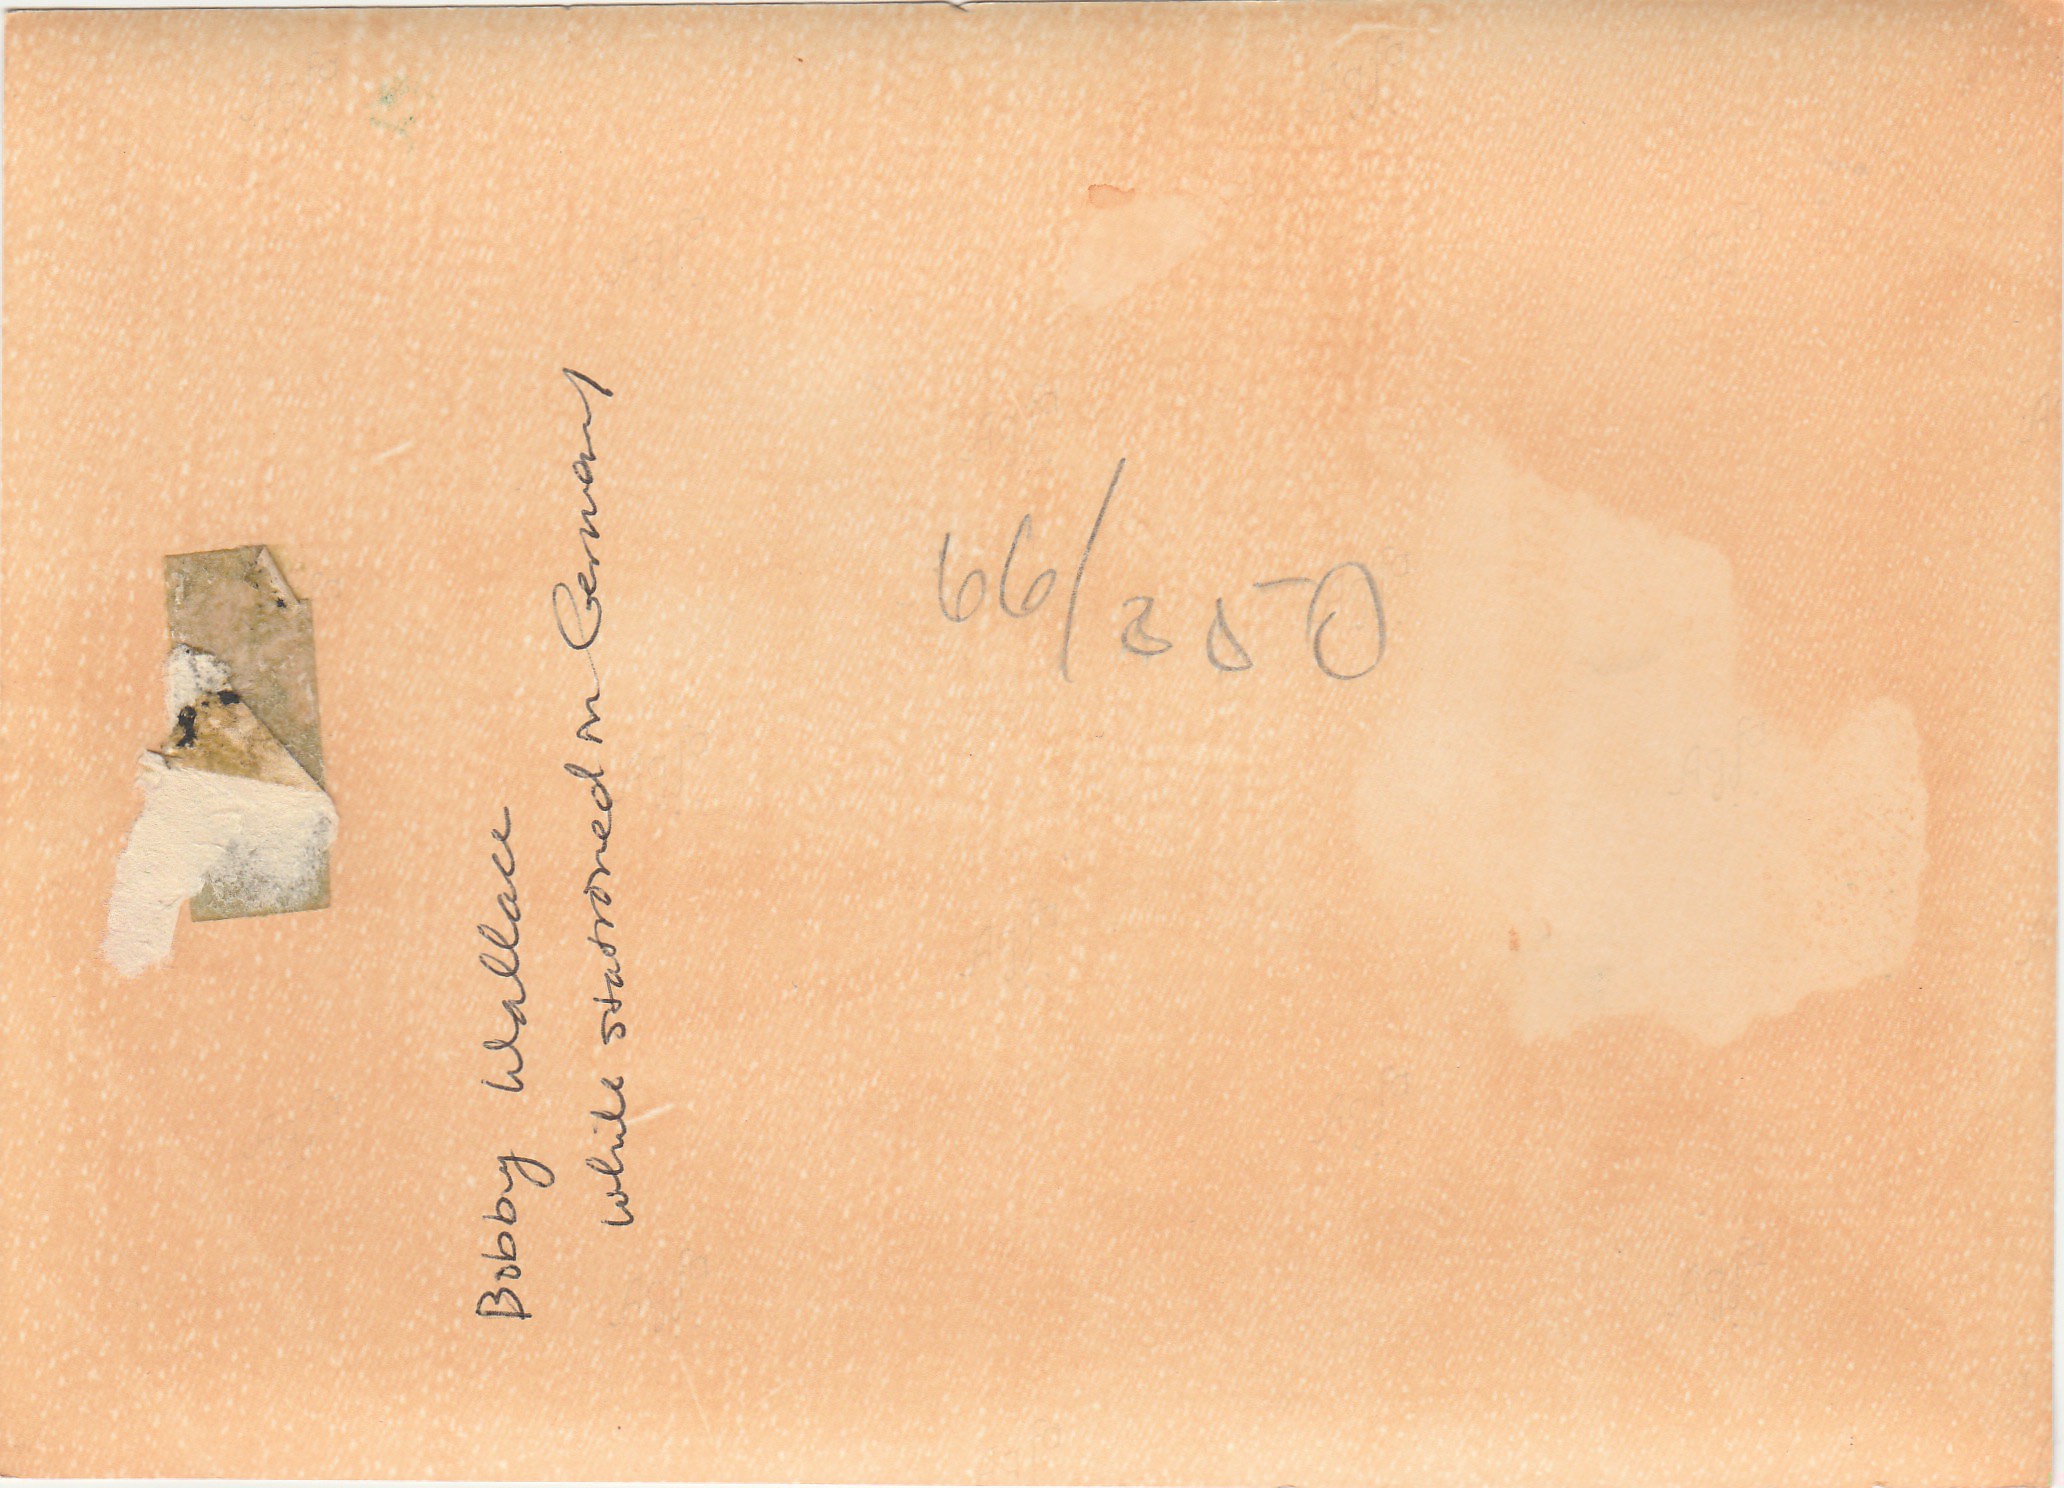 Bobby Wallace
while stationed in Germany